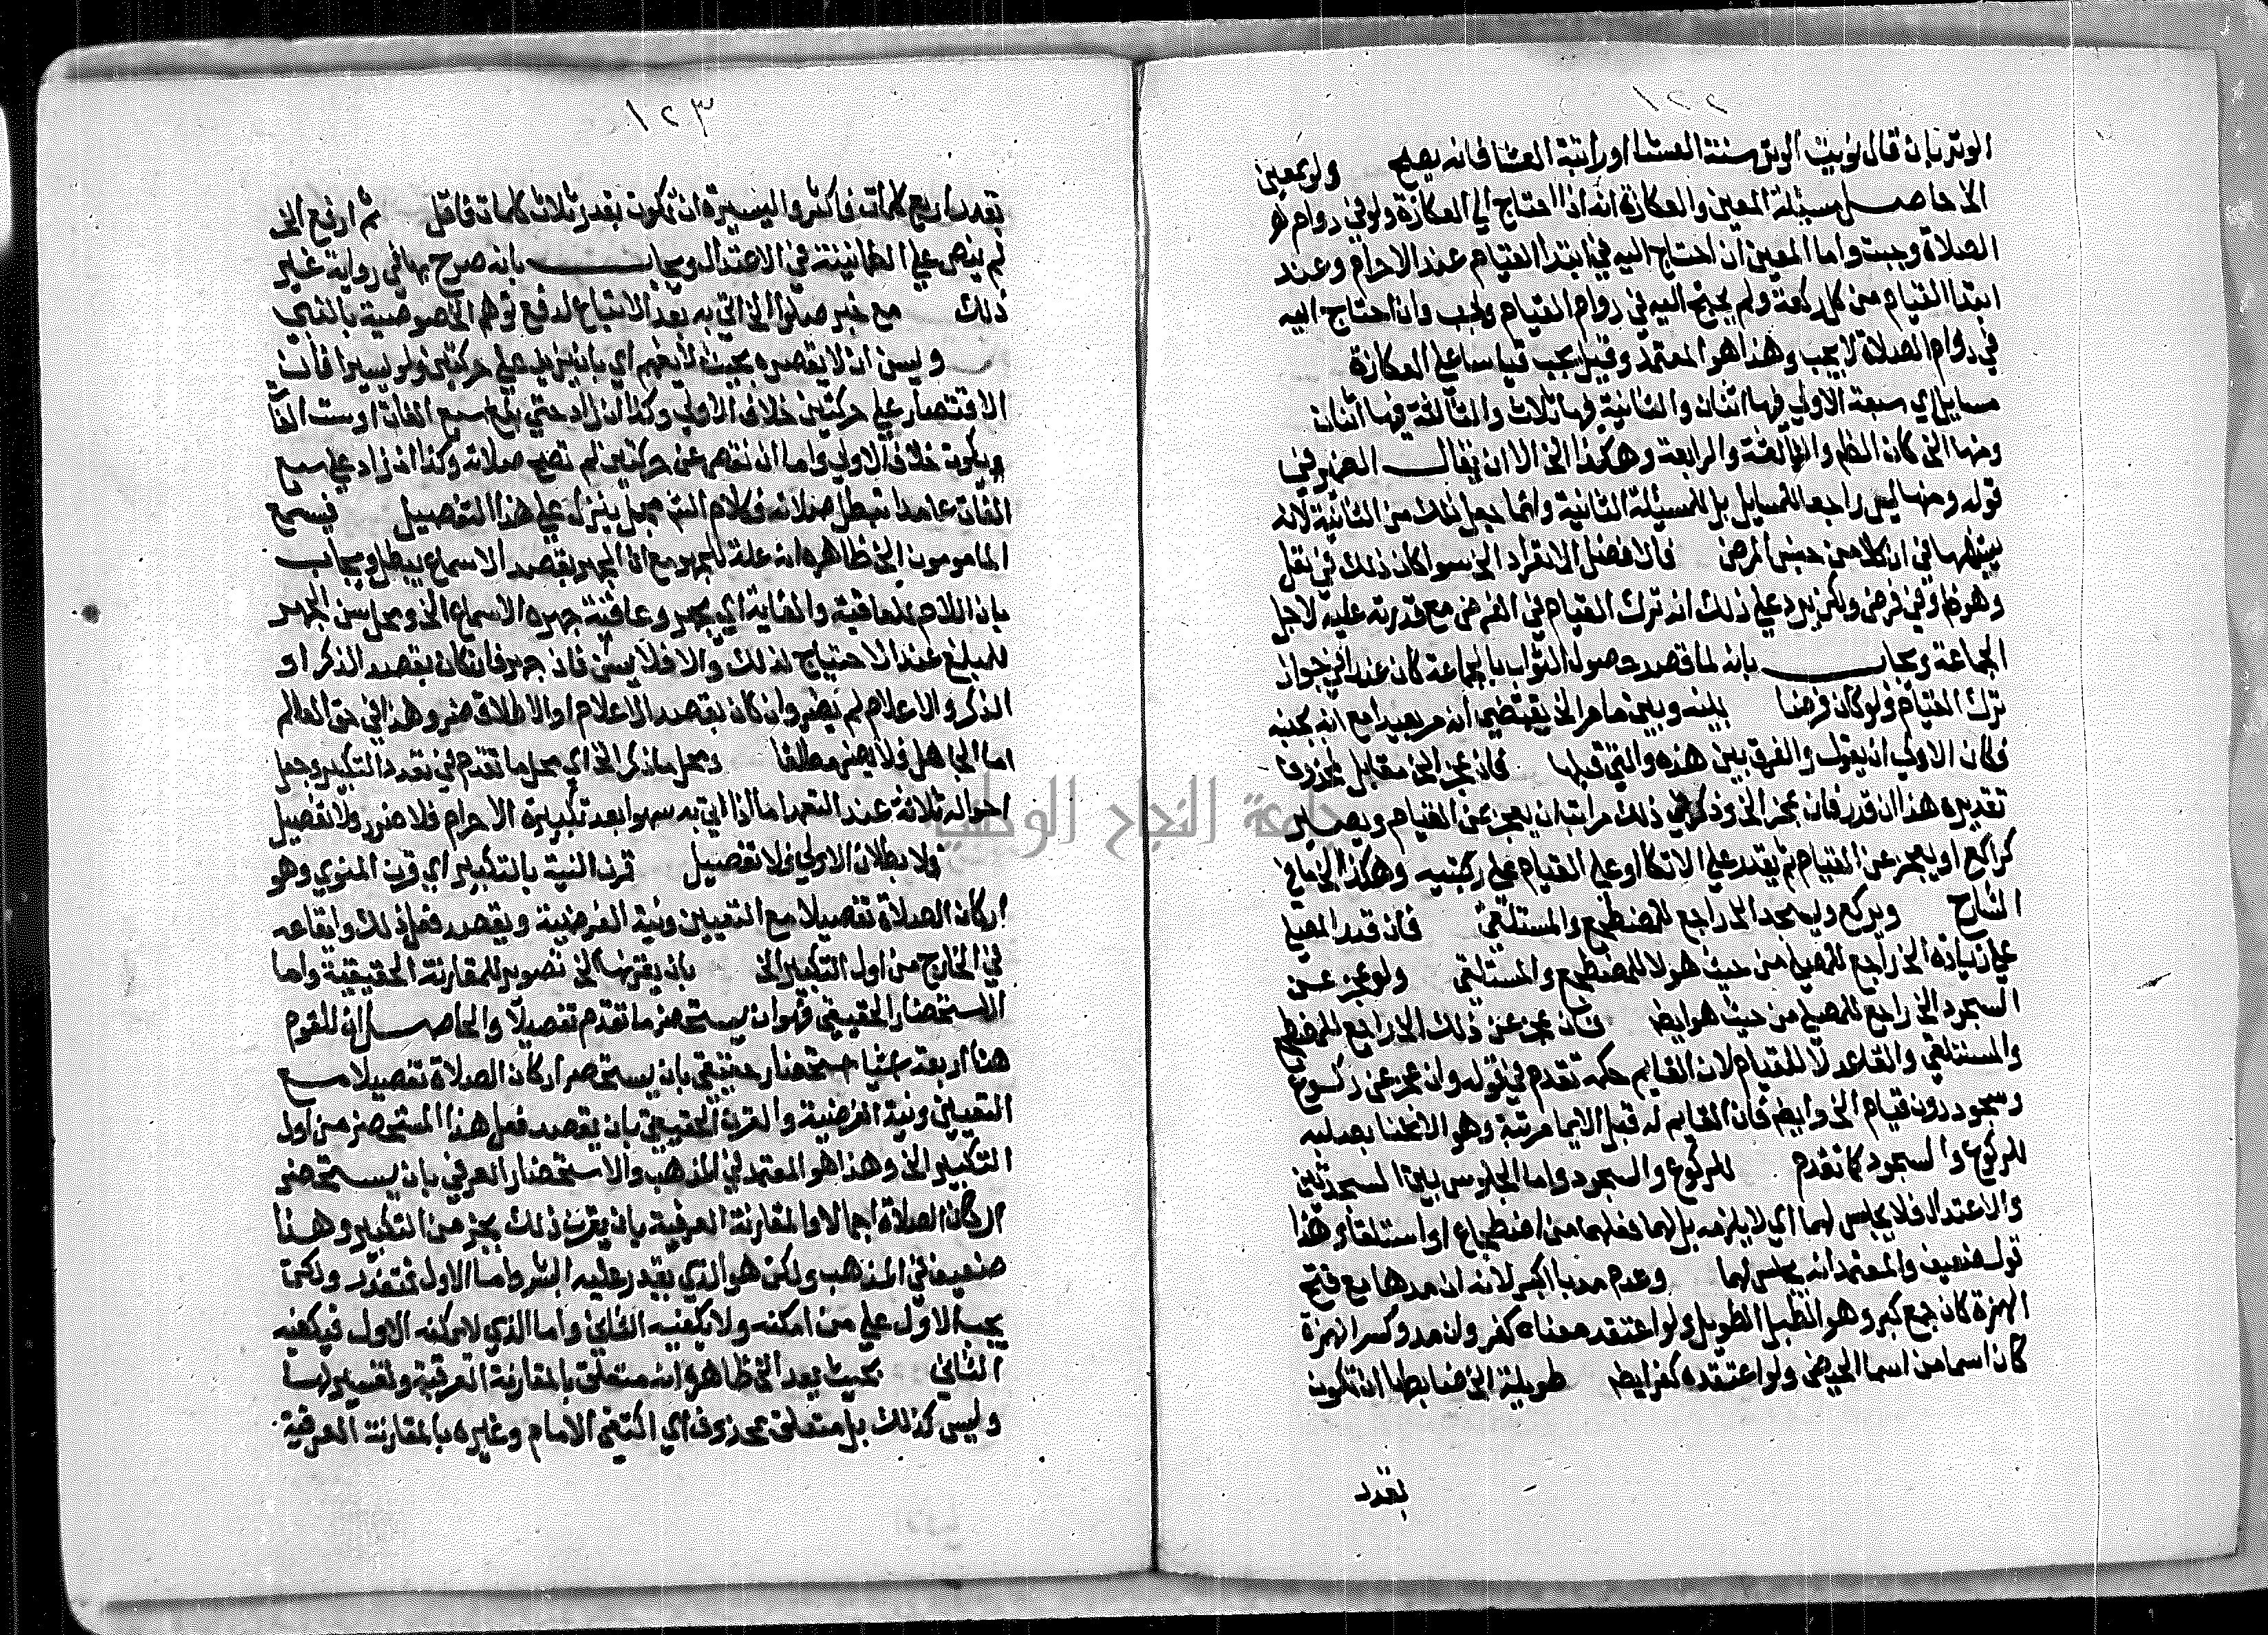 ١٢٢
الوتر بان قال نويت الوتر سنة العشا او راتبة العشا فانه يصح ولو بمعين
الخ حاصل مسئلة المعين والعكازة انه اذا احتاج الي العكازة ولو في دوام
الصلاة وجبت واما المعين ان احتاج اليه في ابتدا القيام عند الاحرام وعند
ابتدا القيام من كل ركعة ولم يحتج اليه في دوام القيام وجب وان احتاج اليه
في دوام الصلاة لا يجب وهذا هو المعتمد وقيل يجب قياسا علي العكازة
مسايل اي سبعة الاولي فيها اثنان والثانية فيها ثلاث والثالثة فيها اثنان
ومنها الخ كان الظم والثالثة والرابعة وهكذا الخ الا ان يقال الضمير في
قوله ومنها ليس راجعا للمسايل بل للمسئلة الثانية وانما جعل ذلك من الثانية لانه
في ان كلا من جنس المرض فالافضل الانفراد الخ سوا كان ذلك في نفل
وهو ظ وفي فرض ولكن يرد علي ذلك انه ترك القيام في الفرض مع قدرته عليه لاجل
الجماعة ويجاب بانه لما قصد حصول الثواب بالجماعة كان عذرا في جواز
ترك القيام ولو كان فرضا بينه وبين ما مر الخ يقتضي انه مر بعيدا مع انه بجنبه
فكان الاولي ان يقول والفرق بين هذه والتي قبلها فان عجز الخ مقابل لمحذوف
تقديره هذا ان قدر فان عجز الخ وذكر في ذلك مراتب بان يعجز عن القيام ويصير
كراكع او يعجز عن القيام ثم يقدر علي الاتكا او علي القيام علي ركبتيه وهكذا الي ما في
الشارح ويركع ويسجد الخ راجع للمضطجع والمستلقي فان قدر المصلي
علي زيادة الخ راجع للمصلي من حيث هو لا للمضطجع والمستلقي ولو عجز عن
السجود الخ راجع للمصلي من حيث هو ايض فان عجز عن ذلك الخ راجع للمضطجع
والمستلقي والقاعد لا للقيام لان القايم حكمه تقدم في قوله وان عجز عن ركوع
وسجود دون قيام الخ وايض فان القايم له قبل الايما مرتبة وهو الانحنا بصلبه
للركوع والسجود كما تقدم للركوع والسجود واما الجلوس بين السجدتين
والاعتدال فلا يجلس لهما اي لا يلزمه بل لهما فعلهما من اضطجاع او استلقا وهذا
قول ضعيف والمعتمد انه يجلس لهما وعدم مد با اكبر لانه ان مدها مع فتح
الهمزة كان جمع كبر وهو الطبل الطويل ولو اعتقد معناه كفر وان مد وكسر الهمزة
كان اسما من اسما الحيض ولو اعتقده كفر ايض طويلة الخ ضابطها ان تكون
بقدر
١٢٣
بقدر اربع كلمات فاكثر واليسيرة ان تكون بقدر ثلاث كلمات فاقل ثم ارفع الخ
لم ينص علي الطمانينة في الاعتدال ويجاب بانه صرح بها في رواية غير
ذلك مع خبر صلوا الخ اتي به بعد الاتباع لدفع توهم الخصوصية بالنبي
ويسن ان لا يقصره بحيث لا يفهم اي بان يزيد علي حركتين ولو يسيرا فان
الاقتصار علي حركتين خلاف الاولي وكذا ان زاد حتي بلغ سبع الفات او ست الفا
ويكون خلاف الاولي واما ان نقص عن حركتين لم تصح صلاته وكذا ان زاد علي سبع
الفات عامدا تبطل صلاته وكلام الشم مجمل ينزل علي هذا التفصيل فيسمع
المامومون الخ ظاهره انه علة للجهر مع ان الجهر بقصد الاسماع يبطل ويجاب
بان اللام للعاقبة والغاية اي يجهر وعاقبة جهره الاسماع الخ ومحل سن الجهر
للمبلغ عند الاحتياج لذلك والا فلا يسن فان جهر فان كان بقصد الذكر او
الذكر والاعلام لم يضر وان كان بقصد الاعلام او الاطلاق ضر وهذا في حق العالم
اما الجاهل فلا يضر مطلقا ومحل ما ذكر الخ اي محل ما تقدم في تعدد التكبير وجعل
احواله ثلاثة عند التعمد اما اذا اتي به سهوا بعد تكبيرة الاحرام فلا ضرر ولا تفصيل
ولا بطلان الاولي ولا تفصيل قرن النية بالتكبير اي قرن المنوي وهو
اركان الصلاة تفصيلا مع التعيين ونية الفرضية ويقصد فعل ذلك وايقاعه
في الخارج من اول التكبير الخ بان يقرنها الخ تصوير للمقارنة الحقيقية واما
الاستحضار الحقيقي فهو ان يستحضر ما تقدم تفصيلا والحاصل ان للقوم
هنا اربعة اشيا استحضار حقيقي بان يستحضر اركان الصلاة تفصيلا مع
التعيين ونية الفرضية والقرن الحقيقي بان يقصد فعل هذا المستحضر من اول
التكبير الخ وهذا هو المعتمد في المذهب والاستحضار العرفي بان يستحضر
اركان الصلاة اجمالا والمقارنة العرفية بان يقرن ذلك بجزء من التكبير وهذا
ضعيف في المذهب ولكن هو الذي يقدر عليه البشر واما الاول فمتعذر ولكن
يجب الاول علي من امكنه ولا يكفيه الثاني واما الذي لا يمكنه الاول فيكفيه
الثاني بحيث يعد الخ ظاهره انه متعلق بالمقارنة العرفية وتفسير لها
وليس كذلك بل متعلق بمحذوف اي اكتفي الامام وغيره بالمقارنة العرفية
جامعة النجاح الوطنية